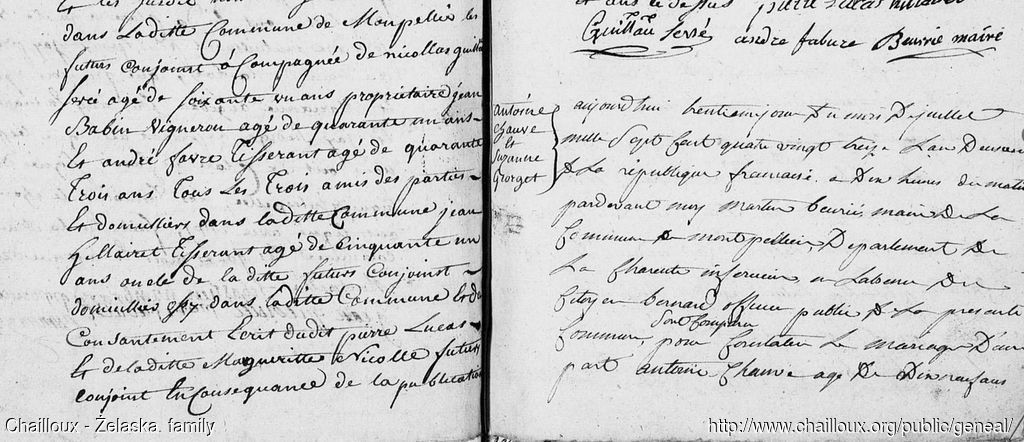 dans Laditte Commune de Monpellié les
futurs Conjoinst á Compagnée de nicollas guillau
servé agé de soixante un ans propriétaire jean
Babin Vigneron agé de quarante un ans
Et andré favre Tisserant agé de quarante
Trois ans Tous Les Trois amis des parties
Et domiciliers dans laditte Commune jean
Tisserant agé de Cinquante un
ans oncle de la ditte futurs Conjoinst
domicillié dans laditte Commune Et du
Consantement Lerit dudit pierre Lucas
Et de laditte Margueritte Nicolle futurs
Conjoint En Consequance de la publication
Guillau Servé andre fabure Beurié maire
Antoine
Chauve
et
Suzanne
Georget
aujourdhui trentieme jour Du mois De juillet
mille Sept Cent quatre vingt treize L'an Deuxieme
De La république francaise a Dix heures du matin
pardevant moy martin beurié maire De La
Commune De montpellier Departement De
La Charente inferieure en Labsence Du
Citoyen bernard officier public De La presente
Commune pour Constater Le mariage D'une
part Antoine Chauve agé De Dix neuf ans
Chailloux - Želaska. family
http://www.chailloux.org/public/geneal/